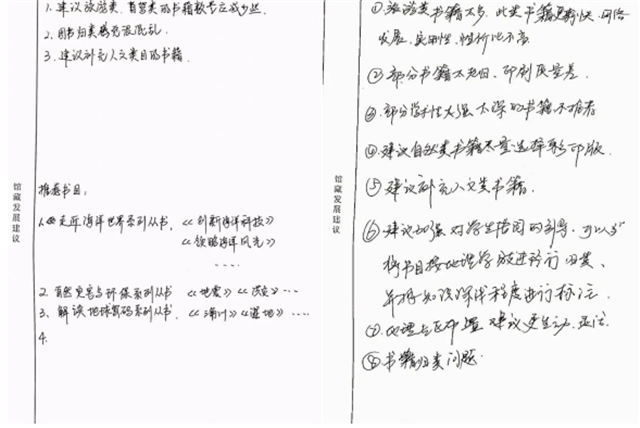 1. 建议旅游类、百答类的书籍数书应减少些.
2. 图书归类感觉很混乱.
3. 建议补充人文类目的书籍.
馆藏发展建议
推荐书目:
1.《走近海洋世界系列丛书,《创新海洋科技》
《领略海洋风光》
....
2. 自然灾害与环保系列丛书 《地震》《 》...
3、解读地球密码系列丛书,《 》《湿地》....
4.
馆藏发展建议
①.旅游类书籍太多, 此类书籍更新快, 网络
发展, 实用性, 性价比不高.
②部分书籍太老旧、印刷质量差.
③.部分学术性太强太深的书籍不推荐
④.建议自然类书籍尽量选择彩印版.
⑤建议补充人文类书籍.
⑥建议加强对学生借阅的引导、可以
将书目按地理学段进行归类、
并将知识深浅程度进行标注.
⑦.地理 建议更生动、灵活.
⑧书籍归类问题.